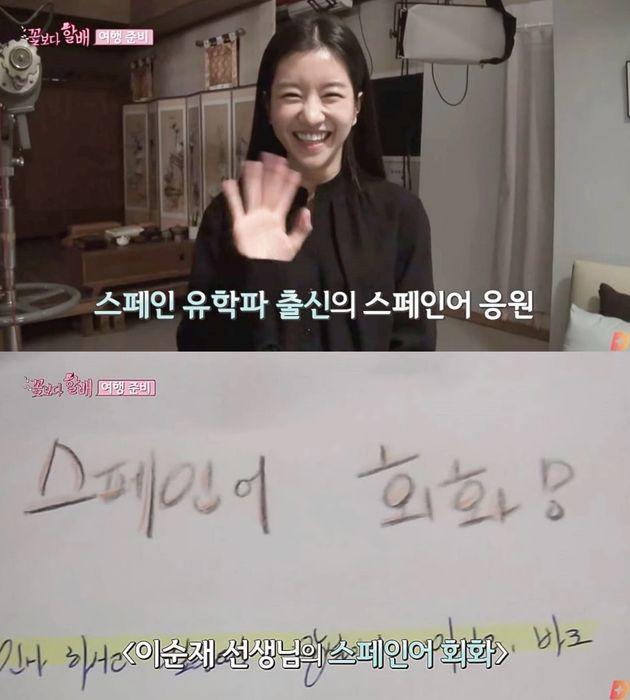 꽃보다 할배 여행 준비
스페인 유학파 출신의 스페인어 응원
꽃보다 할배 여행 준비
스페인어 회화
인사 하시고 바로
<이순재 선생님의 스페인어 회화>